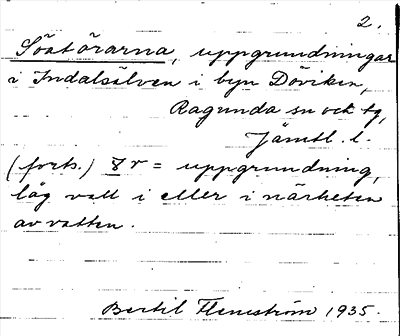 2.
Söståörarna, uppgrundningar
i Indalsälven i byn Döviken,
Ragunda sn och tg,
Jämtl. l.
(forts.) Ör = uppgrundning,
låg vall i eller i närheten
av vatten.
Bertil Flemström 1935.